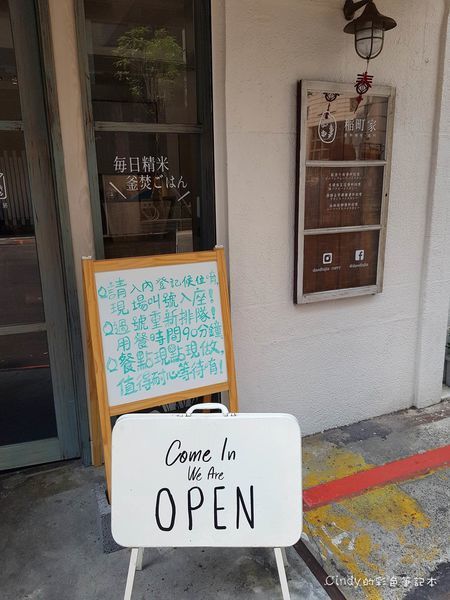 毎日精米
釜焚ごはん
稲町家
請入內登記候位唷
現場叫號入座!
過號重新排隊!
用餐時間90分鐘
餐點現點現做,
值得耐心等待唷!
Come In
We Are
OPEN
Cindy的彩色筆記本